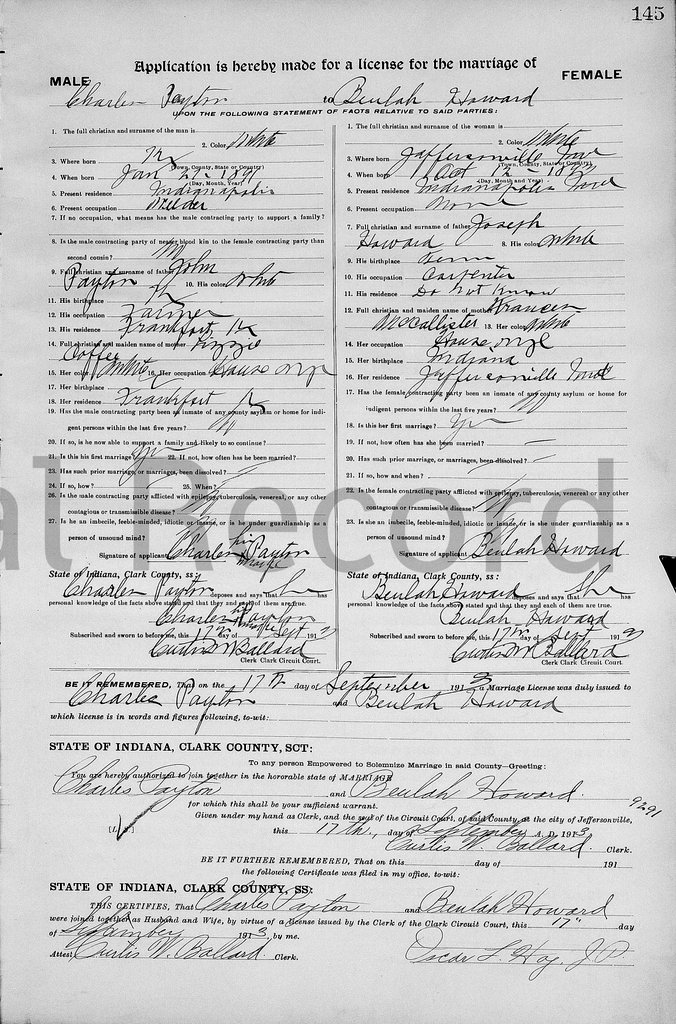 145
Application is hereby made for a license for the marriage of
MALE FEMALE
Charles Payton to Beulah Howard
UPON THE FOLLOWING STATEMENT OF FACTS RELATIVE TO SAID PARTIES:
1. The full christian and surname of the man is
2. Color White
3. Where born Ky
(Town, County, State or Country)
4. When born Jan 29 - 1891
(Day, Month, Year)
5. Present residence Indianapolis
6. Present occupation Welder
7. If no occupation, what means has the male contracting party to support a family?
8. Is the male contracting party of nearer blood kin to the female contracting party than
second cousin? No
9. Full christian and surname of father John
Payton 10. His color White
11. His birthplace Ky
12. His occupation Farmer
13. His residence Frankfort, Ky
14. Full christian and maiden name of mother Lizzie
Coffee
15. Her color White 16. Her occupation House
17. Her birthplace Ky
18. Her residence Frankfort Ky
19. Has the male contracting party been an inmate of any county asylum or home for indi-
gent persons within the last five years? No
20. If so, is he now able to support a family and likely to so continue?
21. Is this his first marriage? Yes 22. If not, how often has he been married?
23. Has such prior marriage, or marriages, been dissolved?
24. If so, how? 25. When?
26. Is the male contracting party afflicted with epilepsy, tuberculosis, venereal, or any other
contagious or transmissible disease? No
27. Is he an imbecile, feeble-minded, idiotic or insane, or is he under guardianship as a
person of unsound mind?
Signature of applicant Charles his mark Payton
State of Indiana, Clark County, ss:
Charles Payton deposes and says that he has
personal knowledge of the facts above stated and that they and each of them are true.
Charles his mark Payton
Subscribed and sworn to before me, this 17th day of Sept 1913
Curtis W Ballard
Clerk Clark Circuit Court.
1. The full christian and surname of the woman is
2. Color White
3. Where born Jeffersonville Ind
(Town, County, State or Country)
4. When born Oct 12 -
(Day, Month, and Year)
5. Present residence Indianapolis Ind
6. Present occupation None
7. Full christian and surname of father Joseph
Howard 8. His color White
9. His birthplace
10. His occupation Carpenter
11. His residence Do Not Know
12. Full christian and maiden name of mother Frances
McCallister 13. Her color White
14. Her occupation House
15. Her birthplace Indiana
16. Her residence Jeffersonville Ind
17. Has the female contracting party been an inmate of any county asylum or home for
indigent persons within the last five years? No
18. Is this her first marriage? Yes
19. If not, how often has she been married?
20. Has such prior marriage, or marriages, been dissolved?
21. If so, how and when?
22. Is the female contracting party afflicted with epilepsy, tuberculosis, venereal or any other
contagious or transmissible disease? No
23. Is she an imbecile, feeble-minded, idiotic or insane, or is she under guardianship as a
person of unsound mind?
Signature of applicant Beulah Howard
State of Indiana, Clark County, ss:
Beulah Howard deposes and says that She has
personal knowledge of the facts above stated and that they and each of them are true.
Beulah Howard
Subscribed and sworn to before me, this 17th day of Sept 1913
Curtis W Ballard
Clerk Clark Circuit Court.
al Record
BE IT REMEMBERED, That on the 17th day of September 1913 a Marriage License was duly issued to
Charles Payton and Beulah Howard
which license is in words and figures following, to-wit:
STATE OF INDIANA, CLARK COUNTY, SCT:
To any person Empowered to Solemnize Marriage in said County—Greeting:
You are hereby authorized to join together in the honorable state of MARRIAGE
Charles Payton and Beulah Howard.
for which this shall be your sufficient warrant. 9291
Given under my hand as Clerk, and the seal of the Circuit Court, of said County, at the city of Jeffersonville,
[L.S.] this 17th, day of September A. D. 1913
Curtis W. Ballard. Clerk.
BE IT FURTHER REMEMBERED, That on this day of 191
the following Certificate was filed in my office, to-wit:
STATE OF INDIANA, CLARK COUNTY, SS:
THIS CERTIFIES, That Charles Payton and Beulah Howard
were joined together as Husband and Wife, by virtue of a license issued by the Clerk of the Clark Circuit Court, this 17" day
of September 1913, by me.
Attest Curtis W. Ballard. Clerk. Oscar L. Hay, J.P.